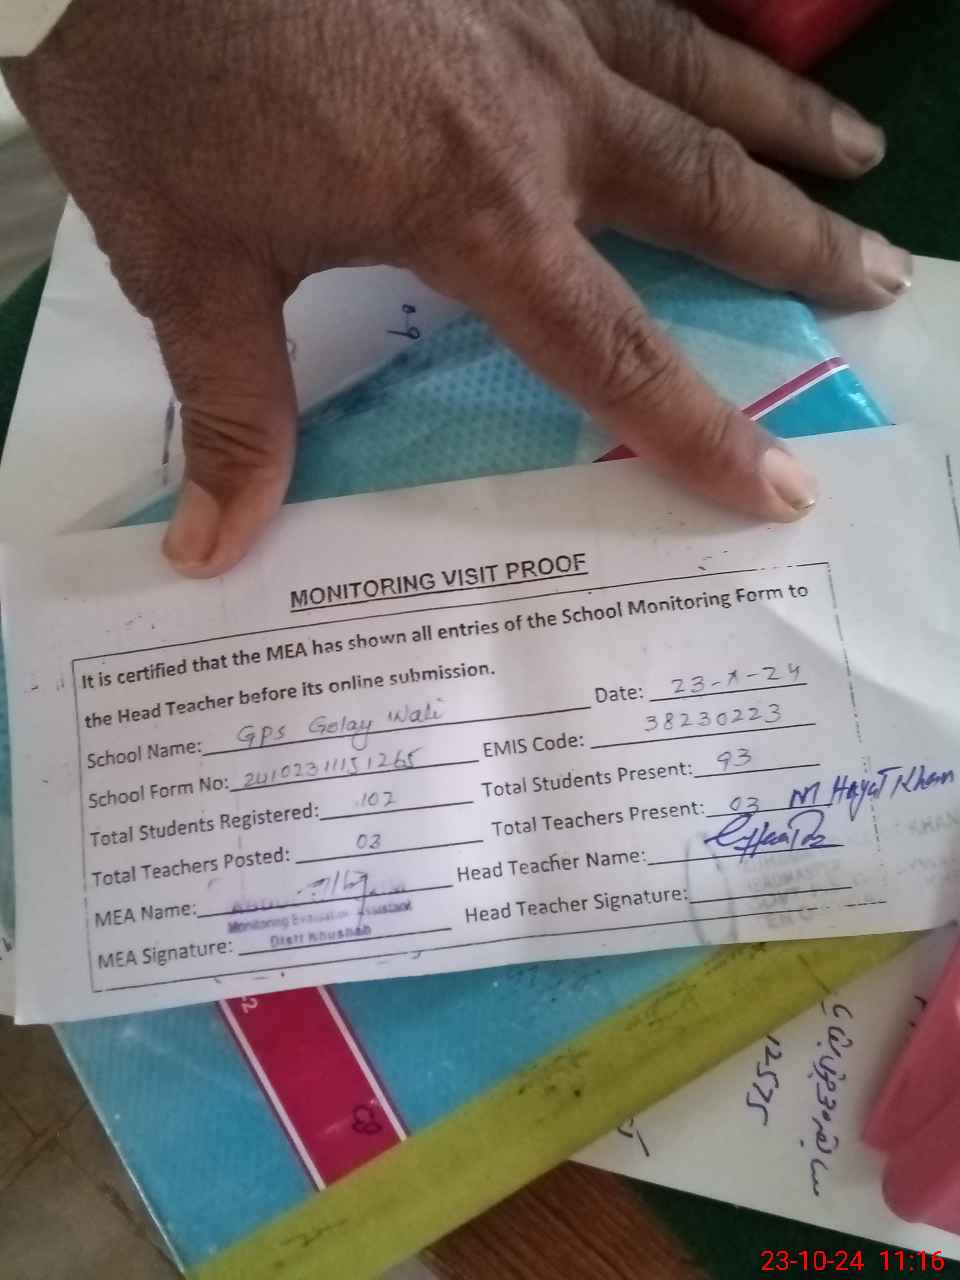 MONITORING VISIT PROOF
It is certified that the MEA has shown all entries of the School Monitoring Form to
the Head Teacher before its online submission.
School Name: GPS Golay Wali Date: 23-X-24
School Form No: EMIS Code: 38230223
Total Students Registered: 102 Total Students Present: 93
Total Teachers Posted: 03 Total Teachers Present: 03 M Hayat Khan
MEA Name: Head Teacher Name:
Monitoring Evaluation Assistant
MEA Signature: Distt Khushab Head Teacher Signature:
12575
23-10-24 11:16